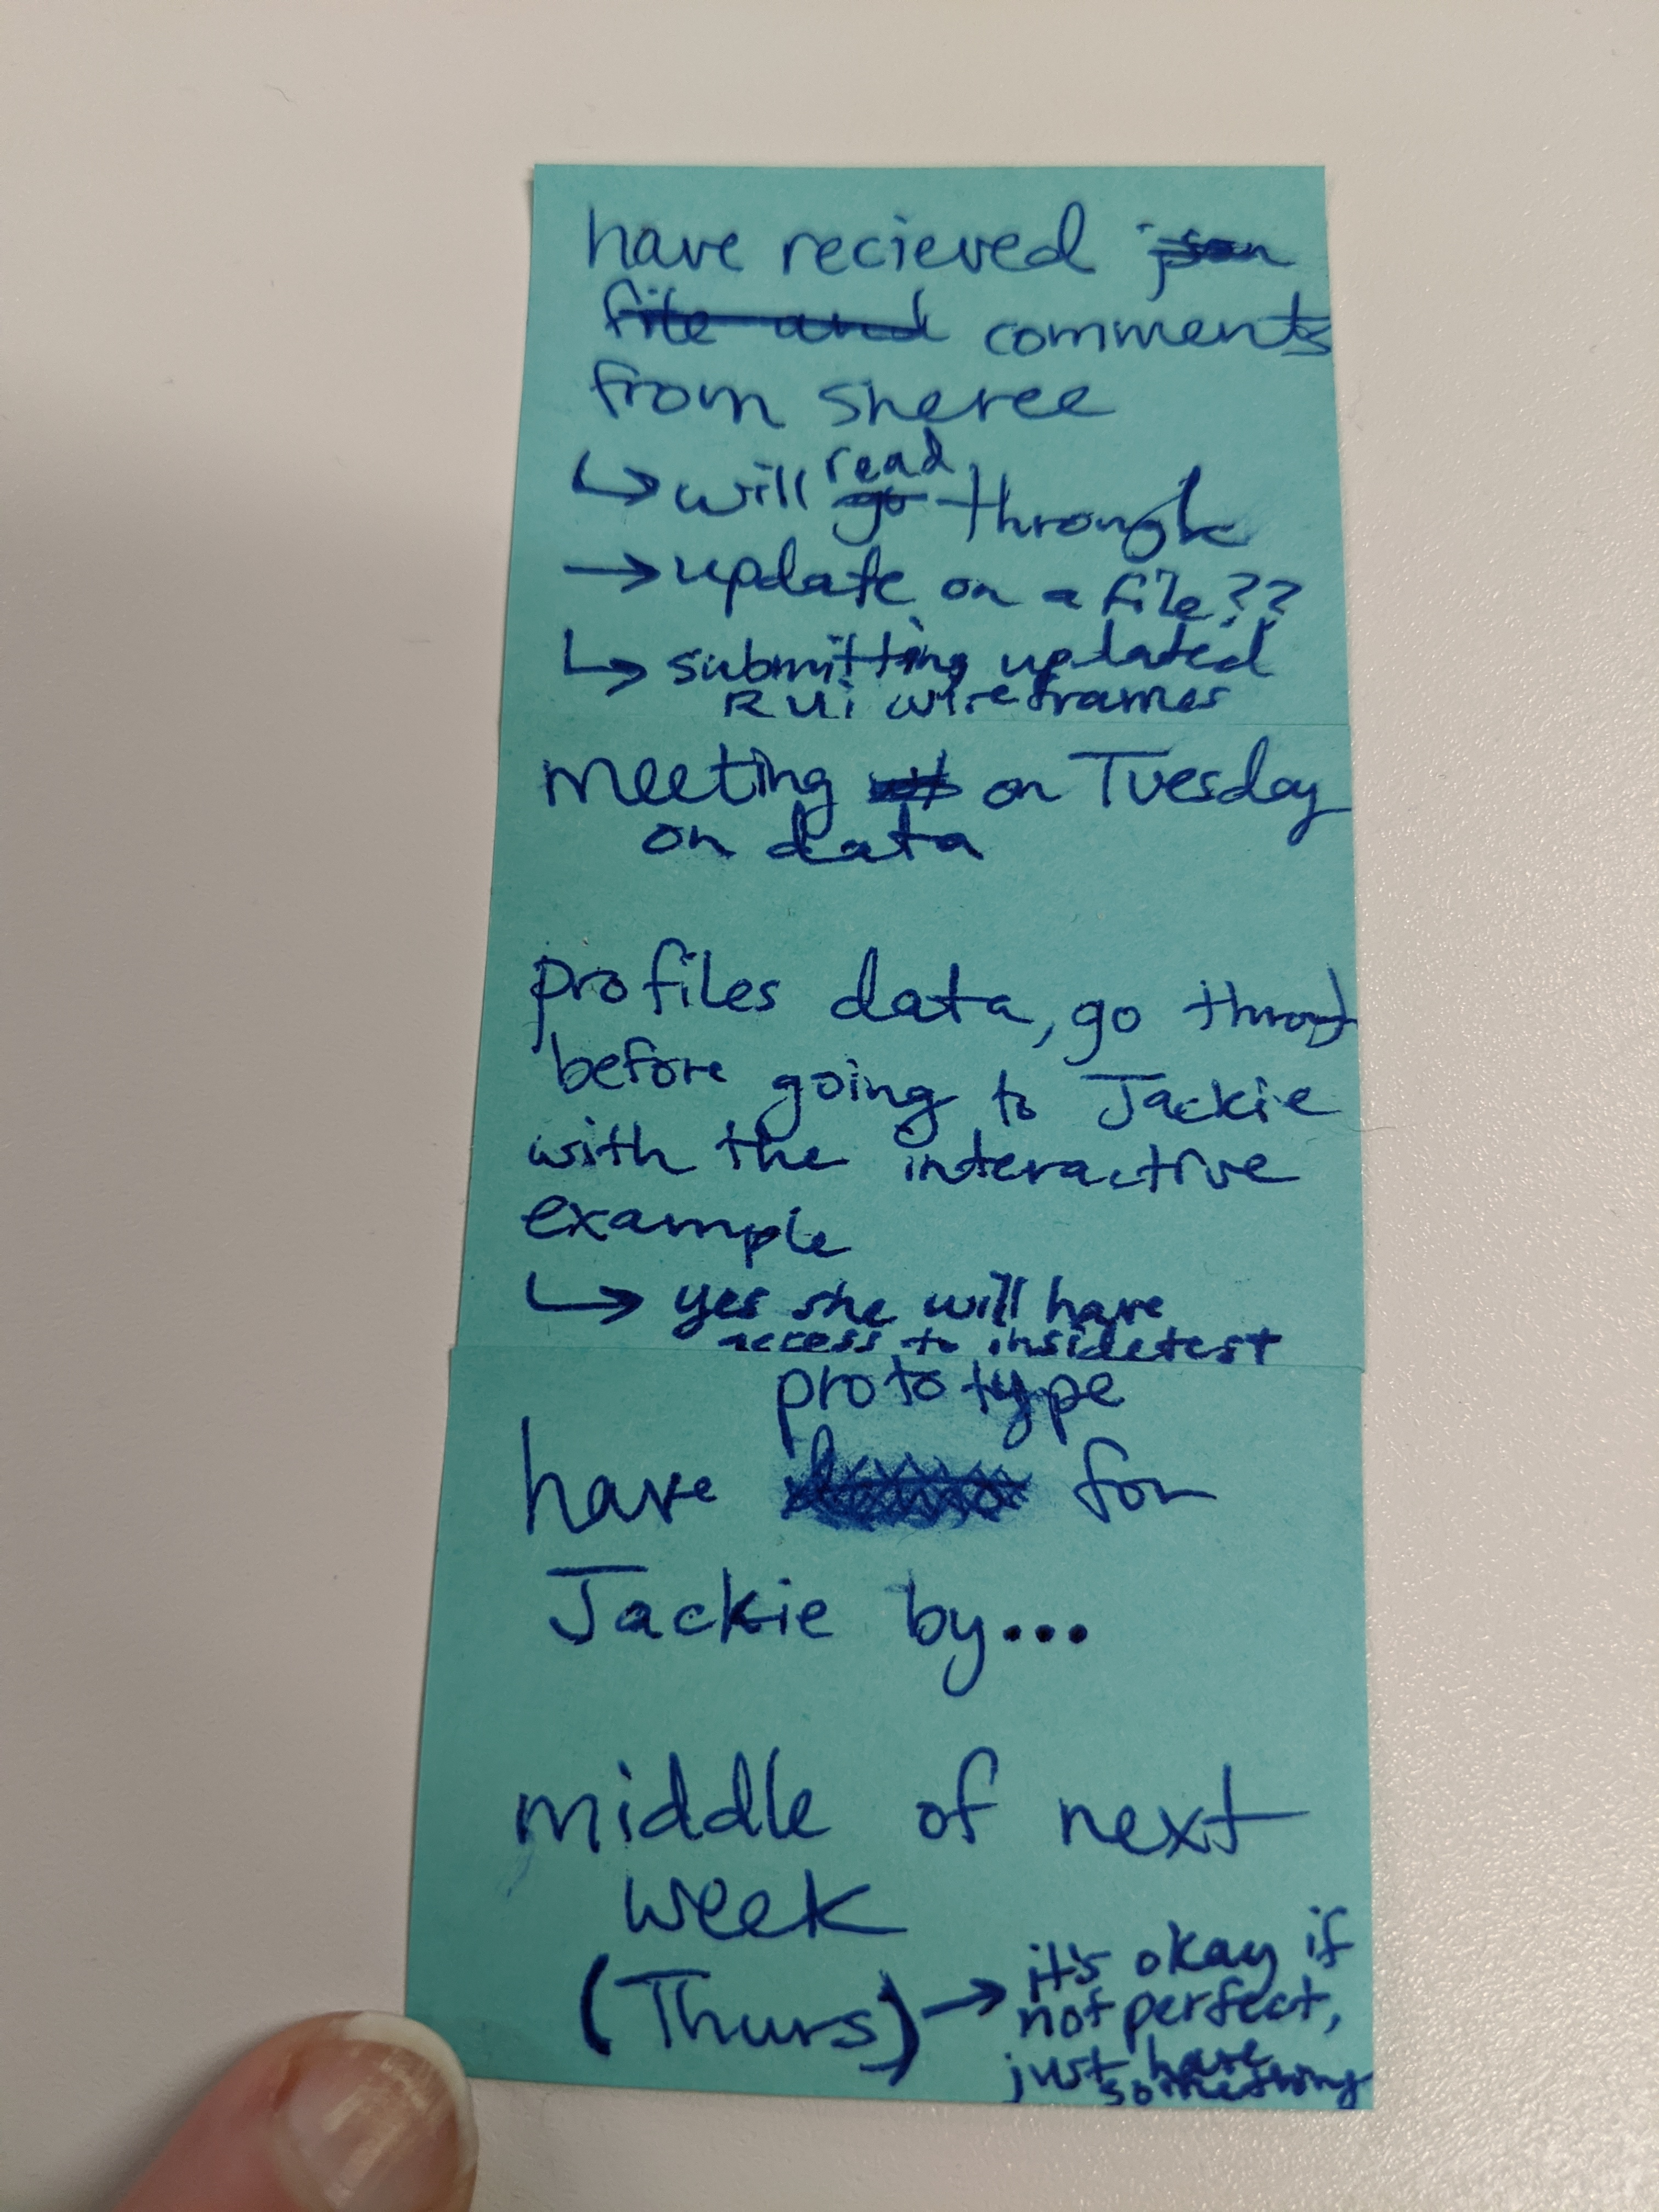 have recieved json
file and comments
from sheree
↳ will read go through
→ update on a file??
↳ submitting updated
RUi wireframes
meeting on Tuesday
on data
profiles data, go
before going to Jackie
with the interactive
example
↳ yes she will have
access to insidetest
prototype
have for
Jackie by...
middle of next
week
(Thurs) → it's okay if
not perfect,
just have
something